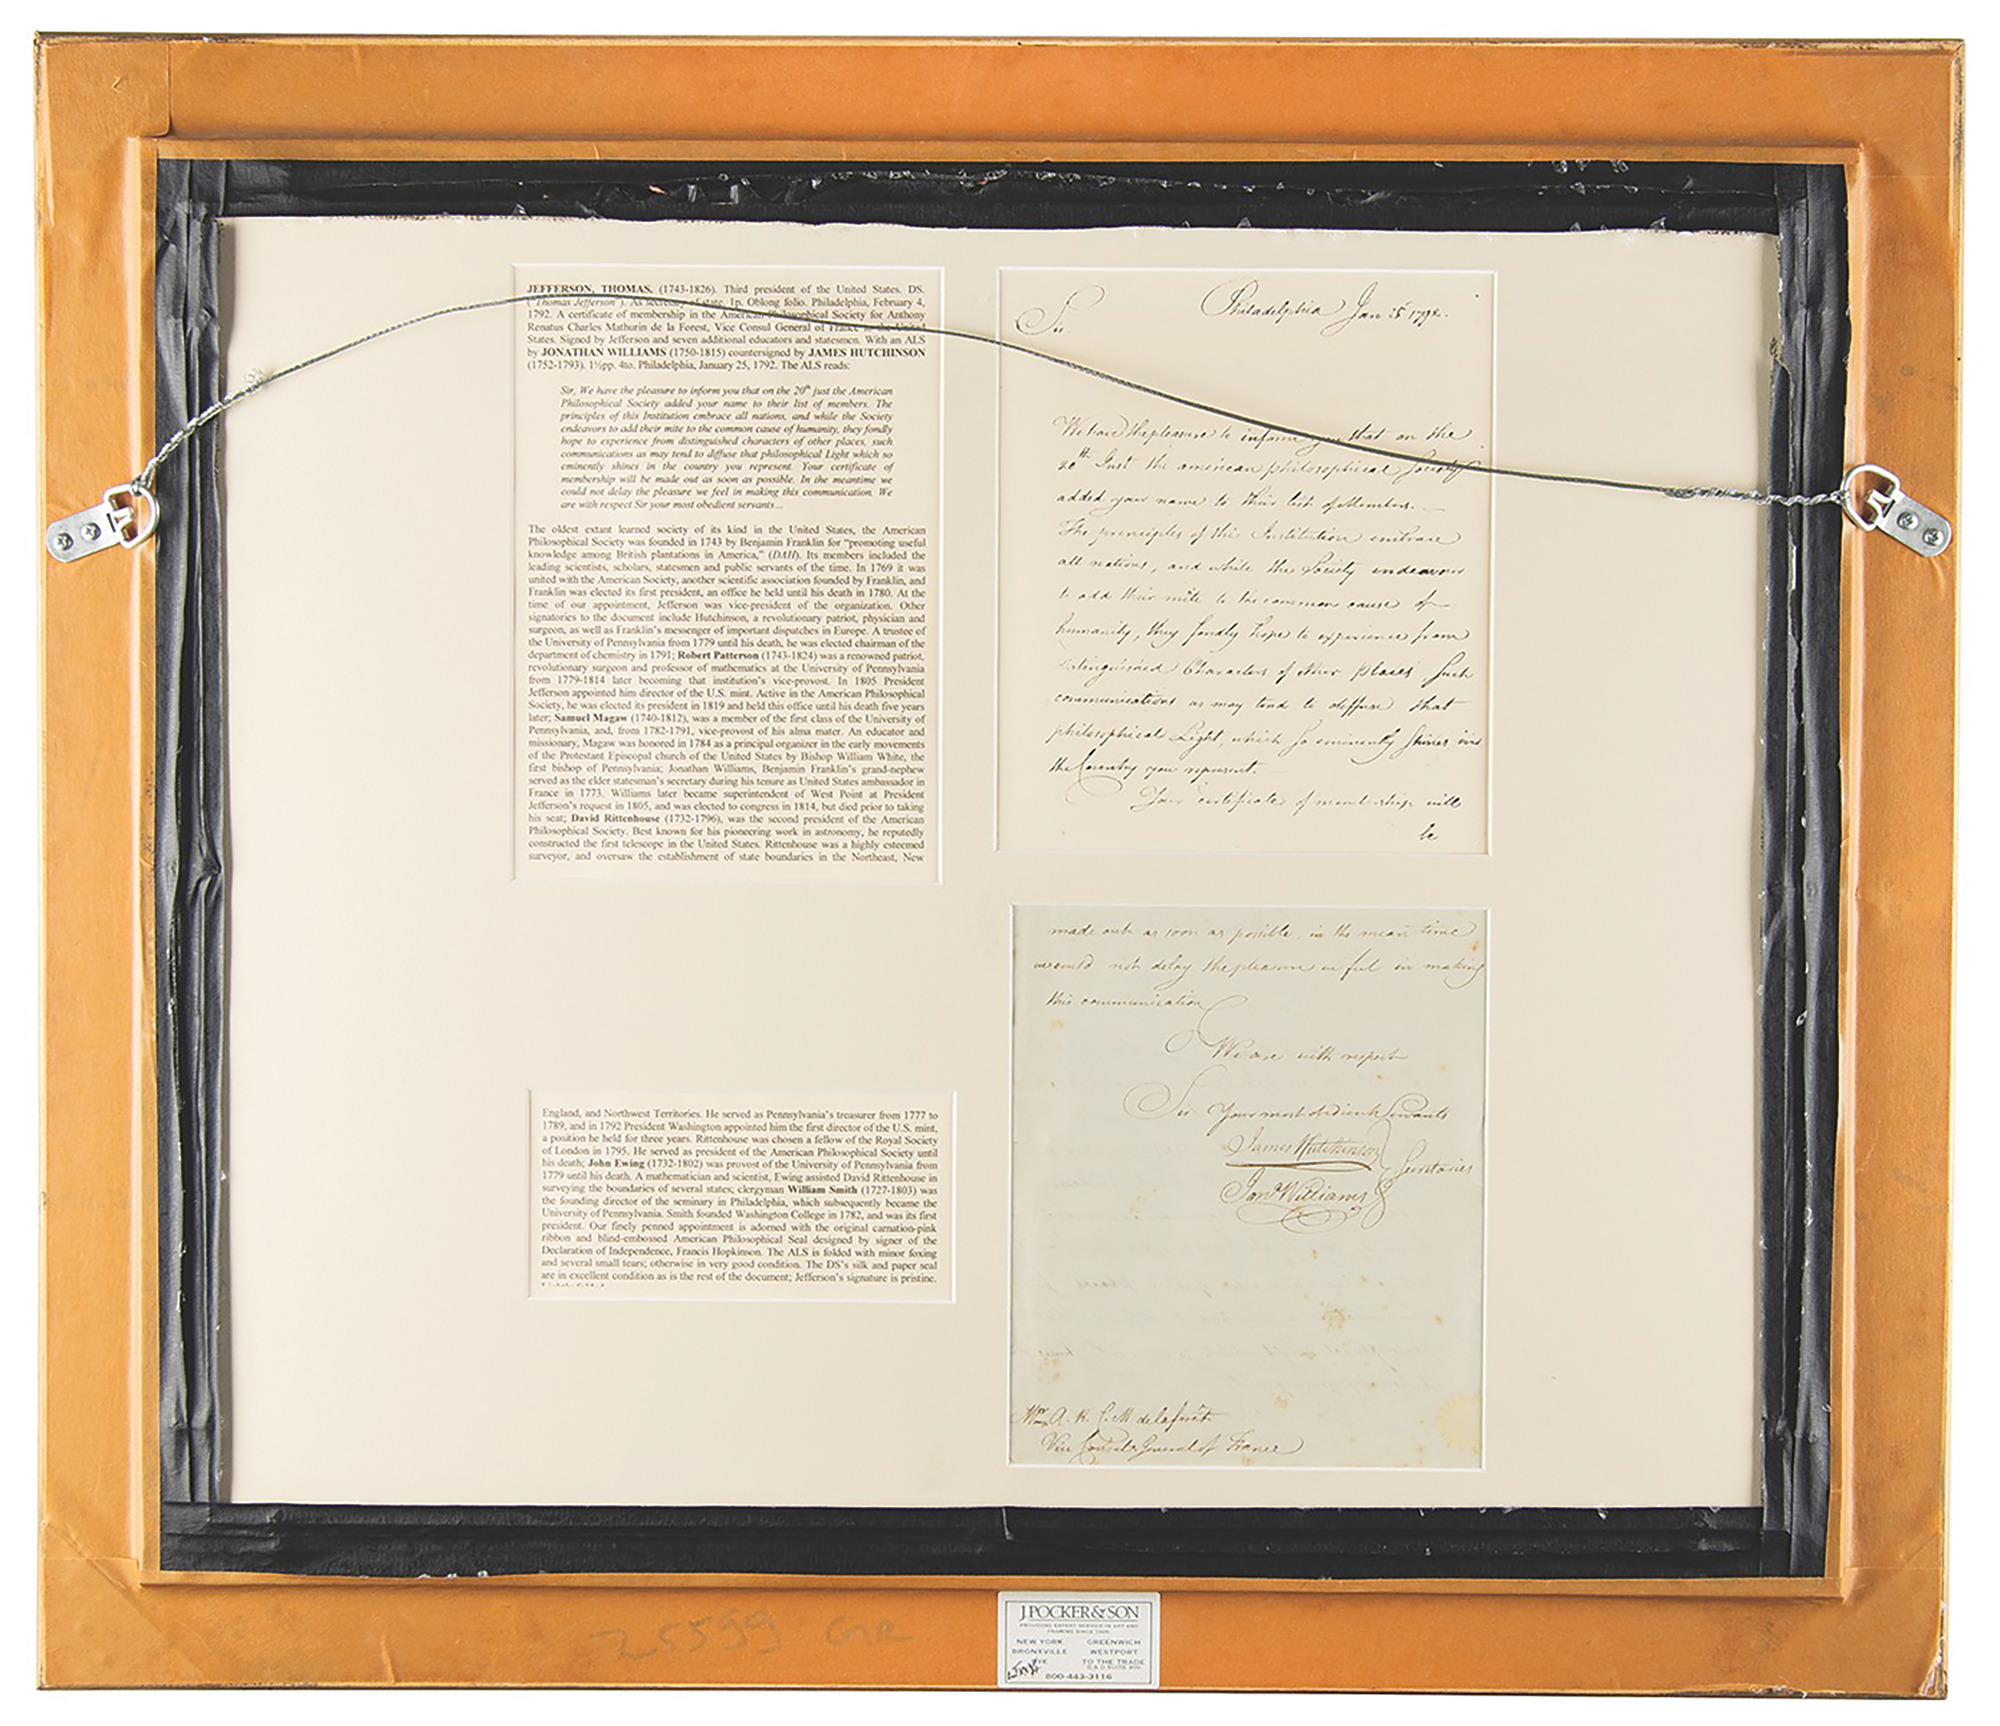 JEFFERSON, THOMAS. (1743-1826). Third president of the United States. DS.
("Thomas Jefferson"). As secretary of state. 1p. Oblong folio. Philadelphia, February 4,
1792. A certificate of membership in the American Philosophical Society for Anthony
Renatus Charles Mathurin de la Forest, Vice Consul General of France to the United
States. Signed by Jefferson and seven additional educators and statesmen. With an ALS
by JONATHAN WILLIAMS (1750-1815) countersigned by JAMES HUTCHINSON
(1752-1793). 1½pp. 4to. Philadelphia, January 25, 1792. The ALS reads:
Sir, We have the pleasure to inform you that on the 20th just the American
Philosophical Society added your name to their list of members. The
principles of this Institution embrace all nations, and while the Society
endeavors to add their mite to the common cause of humanity, they fondly
hope to experience from distinguished characters of other places, such
communications as may tend to diffuse that philosophical Light which so
eminently shines in the country you represent. Your certificate of
membership will be made out as soon as possible. In the meantime we
could not delay the pleasure we feel in making this communication. We
are with respect Sir your most obedient servants....
The oldest extant learned society of its kind in the United States, the American
Philosophical Society was founded in 1743 by Benjamin Franklin for "promoting useful
knowledge among British plantations in America," (DAH). Its members included the
leading scientists, scholars, statesmen and public servants of the time. In 1769 it was
united with the American Society, another scientific association founded by Franklin, and
Franklin was elected its first president, an office he held until his death in 1780. At the
time of our appointment, Jefferson was vice-president of the organization. Other
signatories to the document include Hutchinson, a revolutionary patriot, physician and
surgeon, as well as Franklin's messenger of important dispatches in Europe. A trustee of
the University of Pennsylvania from 1779 until his death, he was elected chairman of the
department of chemistry in 1791; Robert Patterson (1743-1824) was a renowned patriot,
revolutionary surgeon and professor of mathematics at the University of Pennsylvania
from 1779-1814 later becoming that institution's vice-provost. In 1805 President
Jefferson appointed him director of the U.S. mint. Active in the American Philosophical
Society, he was elected its president in 1819 and held this office until his death five years
later; Samuel Magaw (1740-1812), was a member of the first class of the University of
Pennsylvania, and, from 1782-1791, vice-provost of his alma mater. An educator and
missionary, Magaw was honored in 1784 as a principal organizer in the early movements
of the Protestant Episcopal church of the United States by Bishop William White, the
first bishop of Pennsylvania; Jonathan Williams, Benjamin Franklin's grand-nephew
served as the elder statesman's secretary during his tenure as United States ambassador in
France in 1773. Williams later became superintendent of West Point at President
Jefferson's request in 1805, and was elected to congress in 1814, but died prior to taking
his seat; David Rittenhouse (1732-1796), was the second president of the American
Philosophical Society. Best known for his pioneering work in astronomy, he reputedly
constructed the first telescope in the United States. Rittenhouse was a highly esteemed
surveyor, and oversaw the establishment of state boundaries in the Northeast, New
England, and Northwest Territories. He served as Pennsylvania's treasurer from 1777 to
1789, and in 1792 President Washington appointed him the first director of the U.S. mint,
a position he held for three years. Rittenhouse was chosen a fellow of the Royal Society
of London in 1795. He served as president of the American Philosophical Society until
his death; John Ewing (1732-1802) was provost of the University of Pennsylvania from
1779 until his death. A mathematician and scientist, Ewing assisted David Rittenhouse in
surveying the boundaries of several states; clergyman William Smith (1727-1803) was
the founding director of the seminary in Philadelphia, which subsequently became the
University of Pennsylvania. Smith founded Washington College in 1782, and was its first
president. Our finely penned appointment is adorned with the original carnation-pink
ribbon and blind-embossed American Philosophical Seal designed by signer of the
Declaration of Independence, Francis Hopkinson. The ALS is folded with minor foxing
and several small tears; otherwise in very good condition. The DS's silk and paper seal
are in excellent condition as is the rest of the document; Jefferson's signature is pristine.
Philadelphia Jan 25 1792.
Sir
We have the pleasure to inform you that on the
20th Inst the american philosophical Society
added your name to their list of Members. —
The principles of the Institution embrace
all nations, and while the Society endeavour
to add their mite to the common cause of
humanity, they fondly hope to experience from
distinguished Characters of other places Such
communications as may tend to diffuse that
philosophical Light, which so eminently Shines in
the Country you represent.
Your certificate of membership will
be
made out as soon as possible, in the mean time
we could not delay the pleasure we feel in making
this communication
We are with respect
Sir Your most obedient Servants
James Hutchinson
Secretaries
Jonn Williams
Monr A. R. C. M delaforêt
Vice Consul General of France
25599 GR
J. POCKER & SON
PROVIDING EXPERT SERVICE IN ART AND
FRAMING SINCE 1926
NEW YORK GREENWICH
BRONXVILLE WESTPORT
RYE TO THE TRADE
D & D SUITE 400
800-443-3116